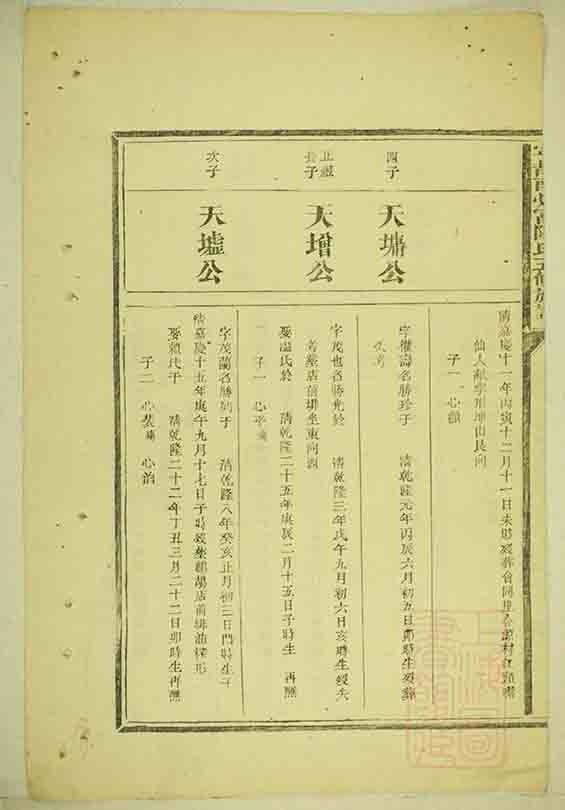 清嘉慶十一年丙寅十二月十一日未時歿葬會同里
仙人獻掌形坤山艮向
子一 心韻
四子
天墉公
字權壽名勝珍于 清乾隆元年丙辰六月初五日卯時生歿葬
失考
長子
天增公
字茂也名勝光於 清乾隆三年戊午九月初六日亥時生歿失
考葬店前排坐東向酉
娶溫氏於 清乾隆二十五年庚辰二月十五日子時生 再醮
子一 心平
次子
天墟公
字茂蘭名勝 于 清乾隆八年癸亥正月初三日 時生于
清嘉慶十五年庚午九月十七日子時歿葬 店前排 形
娶賴氏于 清乾隆二十二年丁丑三月二十二日卯時生再醮
子二 心裝 心治